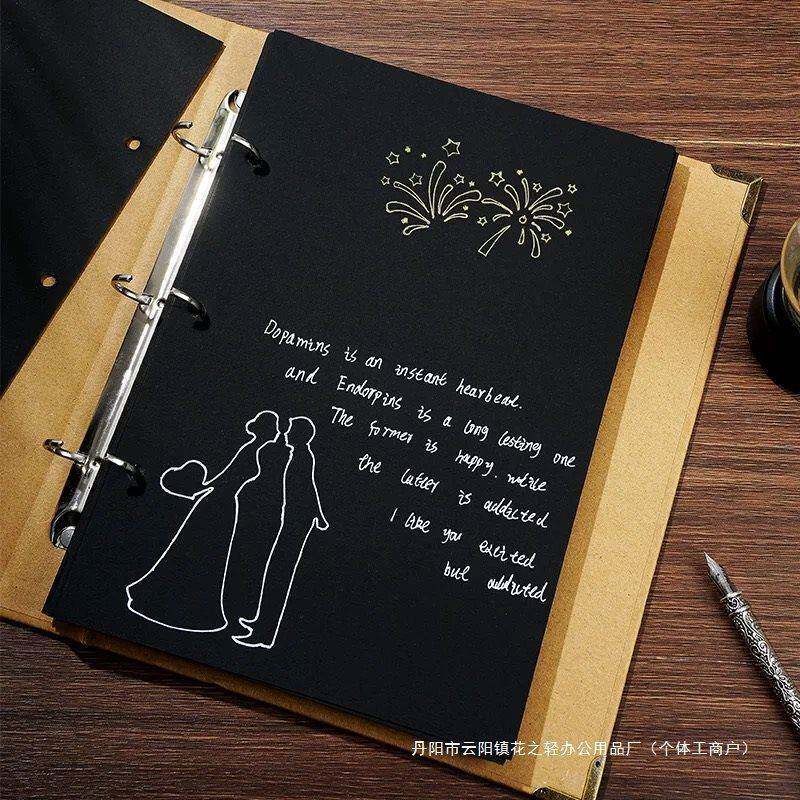 Dopamins is an instant hearbeat.
and Endorpins is a long lesting one
The former is happy. while
the latter is addicted
I like you excited
but addicted
丹阳市云阳镇花之轻办公用品厂（个体工商户）